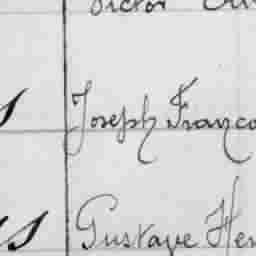 Victor
s Joseph Franço
s Gustave Hen